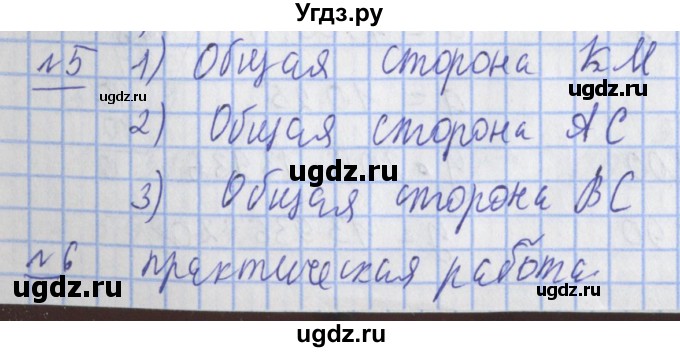 Угдз.ру
№5 1) Общая сторона КМ
ugdz.ru
ugdz.ru
2) Общая сторона АС
ugdz.ru
ugdz.ru
3) Общая сторона ВС
ugdz.ru
№6 практическая работа.
ugdz.ru
ugdz.ru
ugdz.ru